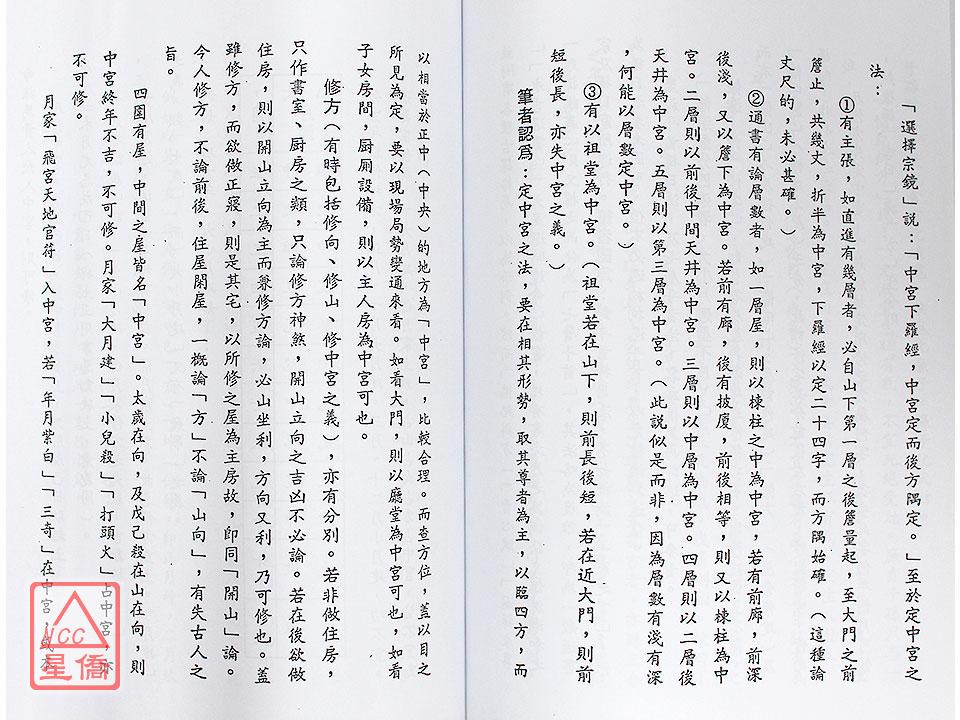 「選擇宗鏡」説：「中宮下羅經，中宮定而後方隅定。」至於定中宮之
法：
①有主張，如直進有幾層者，必自山下第一層之後簷量起，至大門之前
簷止，共幾丈，折半為中宮，下羅經以定二十四字，而方隅始確。（這種論
丈尺的，未必甚確。）
②通書有論層數者，如一層屋，則以棟柱之中為中宮，若有前廊，前深
後淺，又以簷下為中宮。若前有廊，後有披廈，前後相等，則又以棟柱為中
宮。二層則以前後中間天井為中宮。三層則以中層為中宮。四層則以二層後
天井為中宮。五層則以第三層為中宮。（此説似是而非，因為層數有淺有深
，何能以層數定中宮。）
③有以祖堂為中宮。（祖堂若在山下，則前長後短，若在近大門，則前
短後長，亦失中宮之義。）
筆者認為：定中宮之法，要在相其形勢，取其尊者為主，以臨四方，而
以相當於正中（中央）的地方為「中宮」，比較合理。而查方位，蓋以目之
所見為定，要以現場局勢變通來看。如看大門，則以廳堂為中宮可也，如看
子女房間，厨厠設備，則以主人房為中宮可也。
修方（有時包括修向、修山、修中宮之義），亦有分別。若非做住房，
只作書室、厨房之類，只論修方神煞，開山立向之吉凶不必論。若在後欲做
住房，則以開山立向為主而兼修方論，必山坐利，方向又利，乃可修也。蓋
雖修方，而欲做正寢，則是其宅，以所修之屋為主房故，即同「開山」論。
今人修方，不論前後，住屋閑屋，一概論「方」不論「山向」，有失古人之
旨。
四圍有屋，中間之屋皆名「中宮」。太歲在向，及戊己殺在山在向，則
中宮終年不吉，不可修。月家「大月建」「小兒殺」「打頭火」占中宮，亦
不可修。
月家「飛宮天地官符」入中宮，若「年月紫白」「三奇」在中宮，或本
NCC
星僑